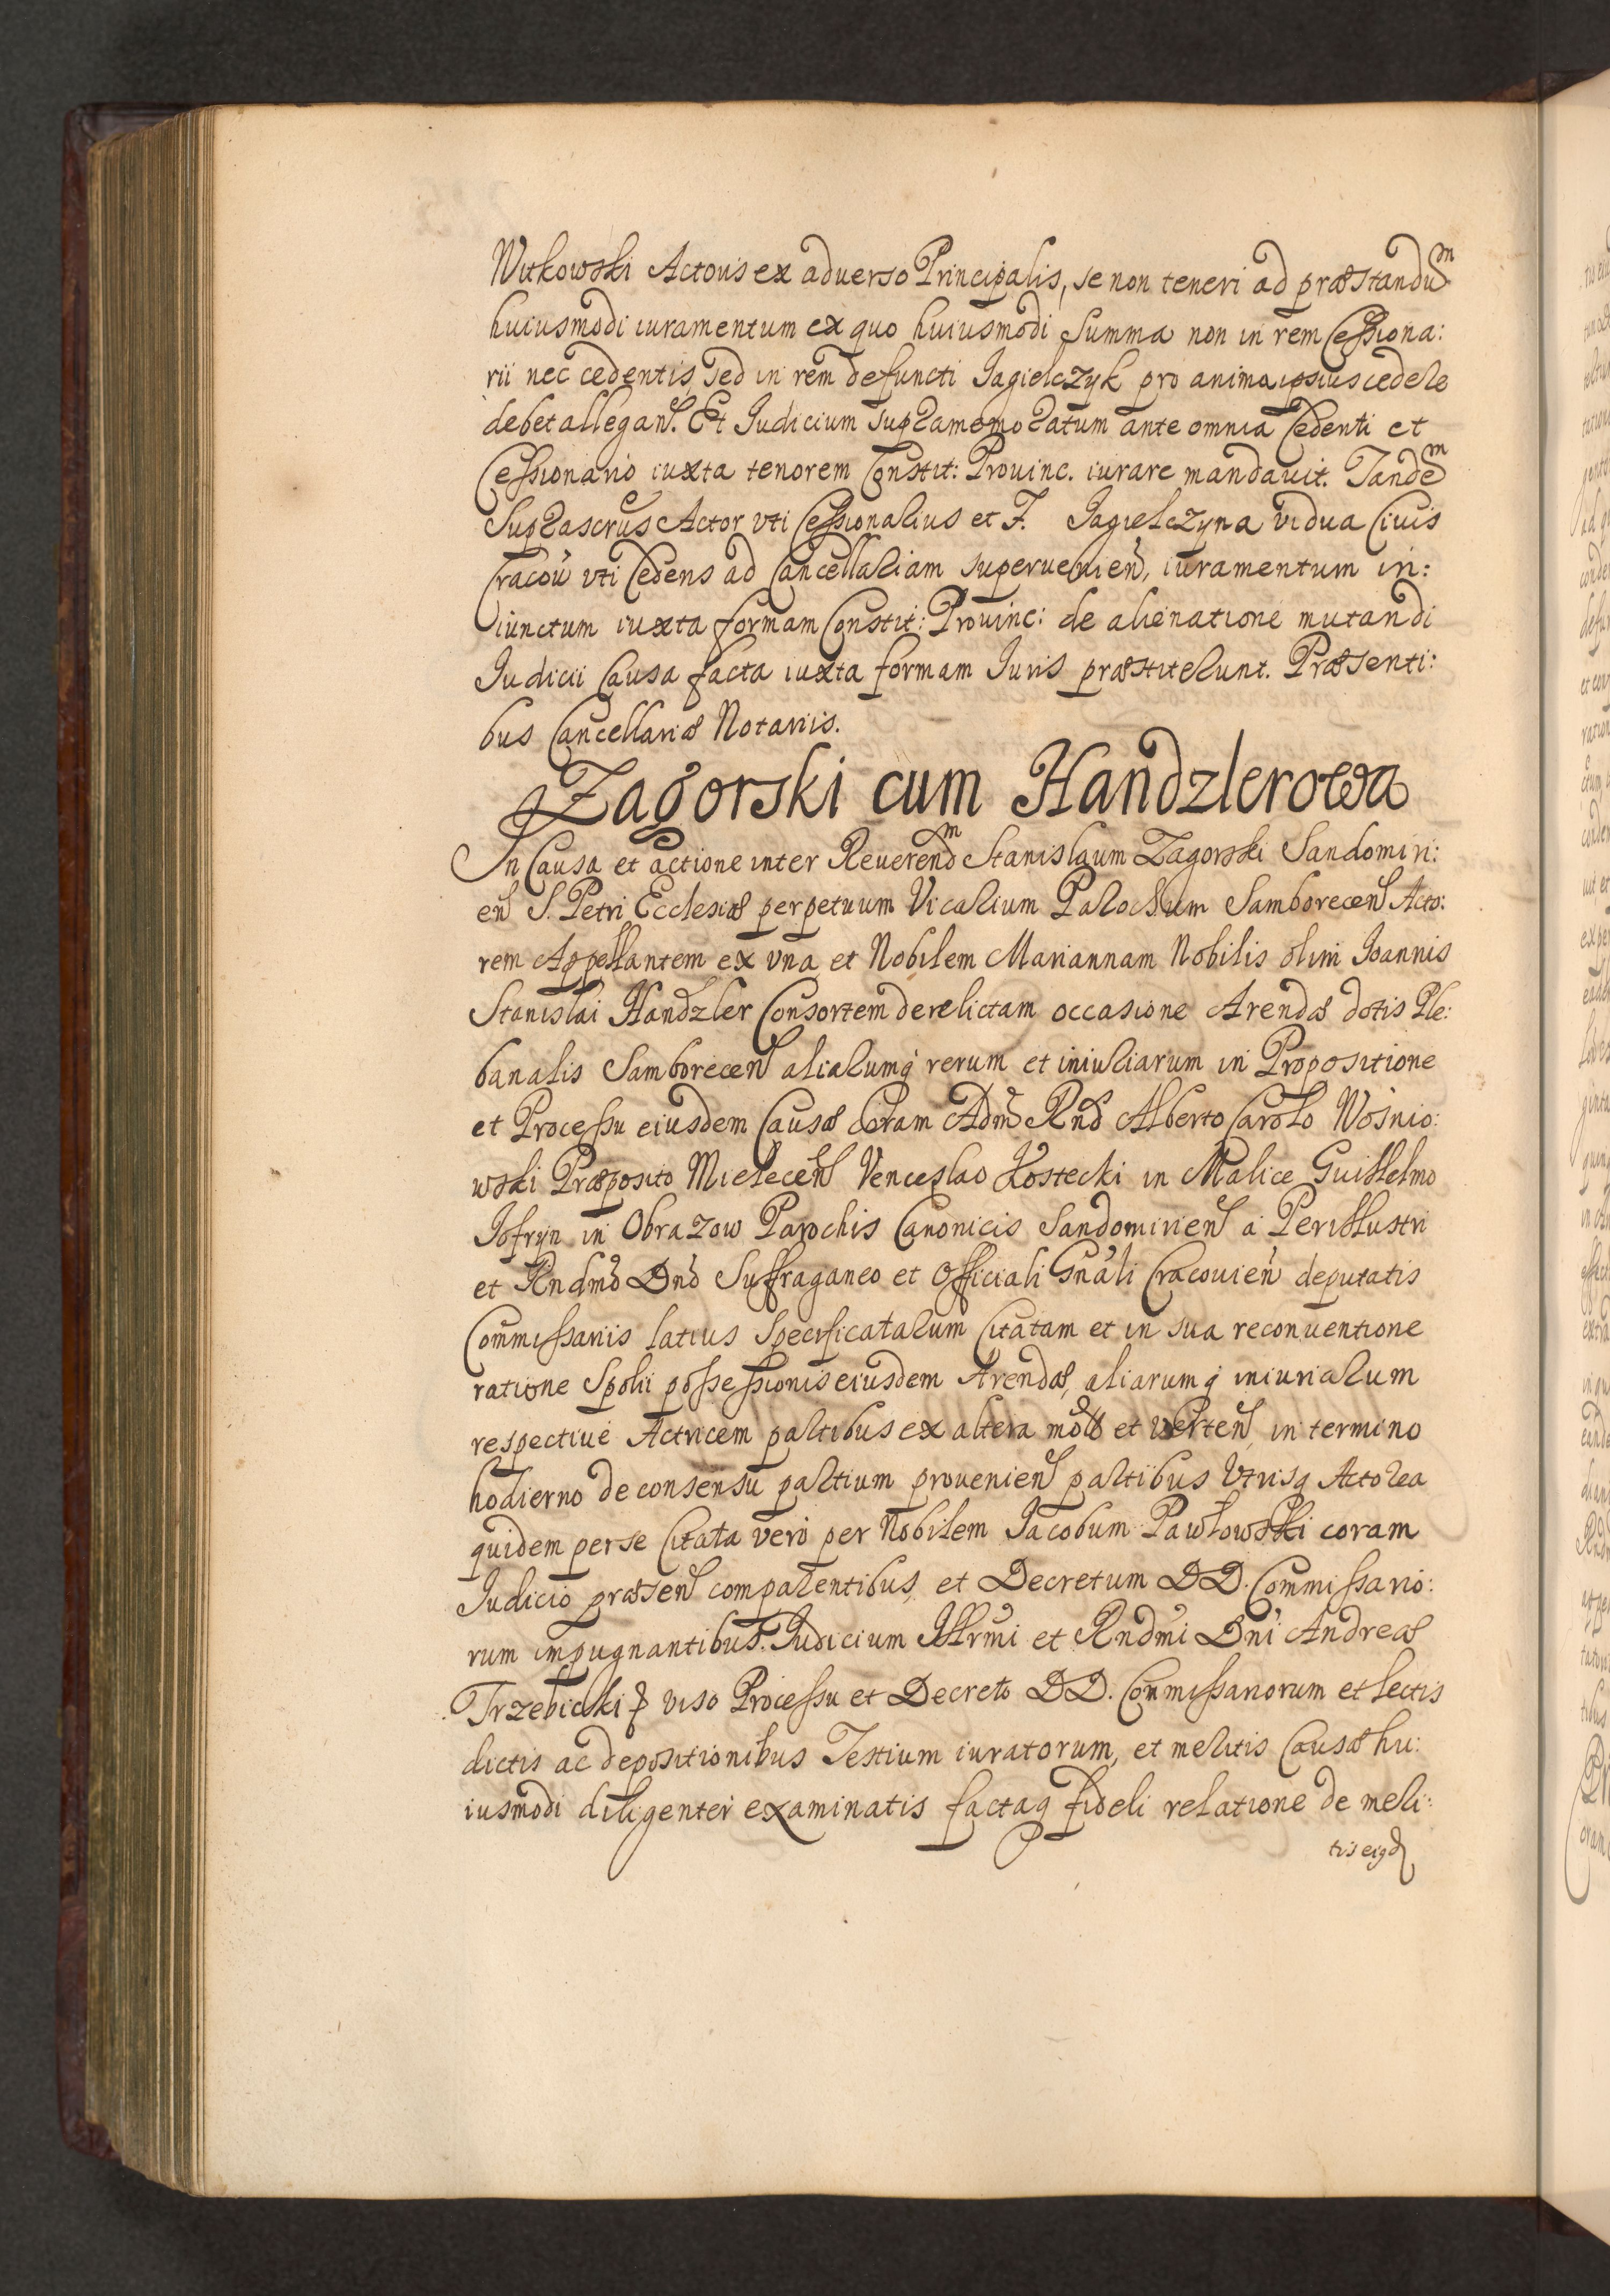 Witkowski Actoris ex aduerso Principalis, se non teneri ad præstandu^m
huiusmodi iuramentum ex quo huiusmodi Summa non in rem Cessiona:
rii nec cedentis sed in rem defuncti Jagielczyk pro anima ipsius cedere
debet allegans. Et Judicium supramemoratum ante omnia Cedenti et
Cessionario iuxta tenorem Constit: Prouinc. iurare mandauit. Tande^m
Suprascrus Actor vti Cessionarius et F. Jagielczyna vidua Ciuis
Cracou vti Cedens ad Cancellariam superuenien, iuramentum in:
iunctum iuxta formam Constit: Prouinc: de alienatione mutandi
Judicii Causa facta iuxta formam Juris præstiterunt. Præsenti:
bus Cancellariæ Notariis.
Zagorski cum Handzlerowa
In Causa et actione inter Reuerend^m Stanislaum Zagorski Sandomiri:
en S. Petri Ecclesiæ perpetuum Vicarium Parochum Samborecen Acto:
rem Appellantem ex vna et Nobilem Mariannam Nobilis olim Joannis
Stanislai Handzler Consortem derelictam occasione Arendæ dotis Ple:
banalis Samborecen aliarumq rerum et iniuriarum in Propositione
et Processu eiusdem Causæ Coram Adm Rnd Alberto Carolo Wosnio:
wski Præposito Mielecen Venceslao Kostecki in Malice Guillelmo
Jofryn in Obrazow Parochis Canonicis Sandomirien a Perillustri
et Rndmo Dno Suffraganeo et Officiali Gnali Cracouien deputatis
Commissariis latius Specificatarum Citatam et in sua reconuentione
ratione Spolii possessionis eiusdem Arendæ, aliarumq iniuriarum
respectiue Actricem partibus ex altera mot et verten in termino
hodierno de consensu partium prouenien partibus Vtrisq Actorea
quidem per se Citata vero per Nobilem Jacobum Pawłowski coram
Judicio præsen comparentibus, et Decretum DD. Commissario:
rum impugnantibus. Judicium Illrmi et Rndmi Dni Andreæ
Trzebicki & viso Processu et Decreto DD. Commissariorum et lectis
dictis ac depositionibus Testium iuratorum, et meritis Causæ hu:
iusmodi diligenter examinatis factaq fideli relatione de meri:
tis eiqd